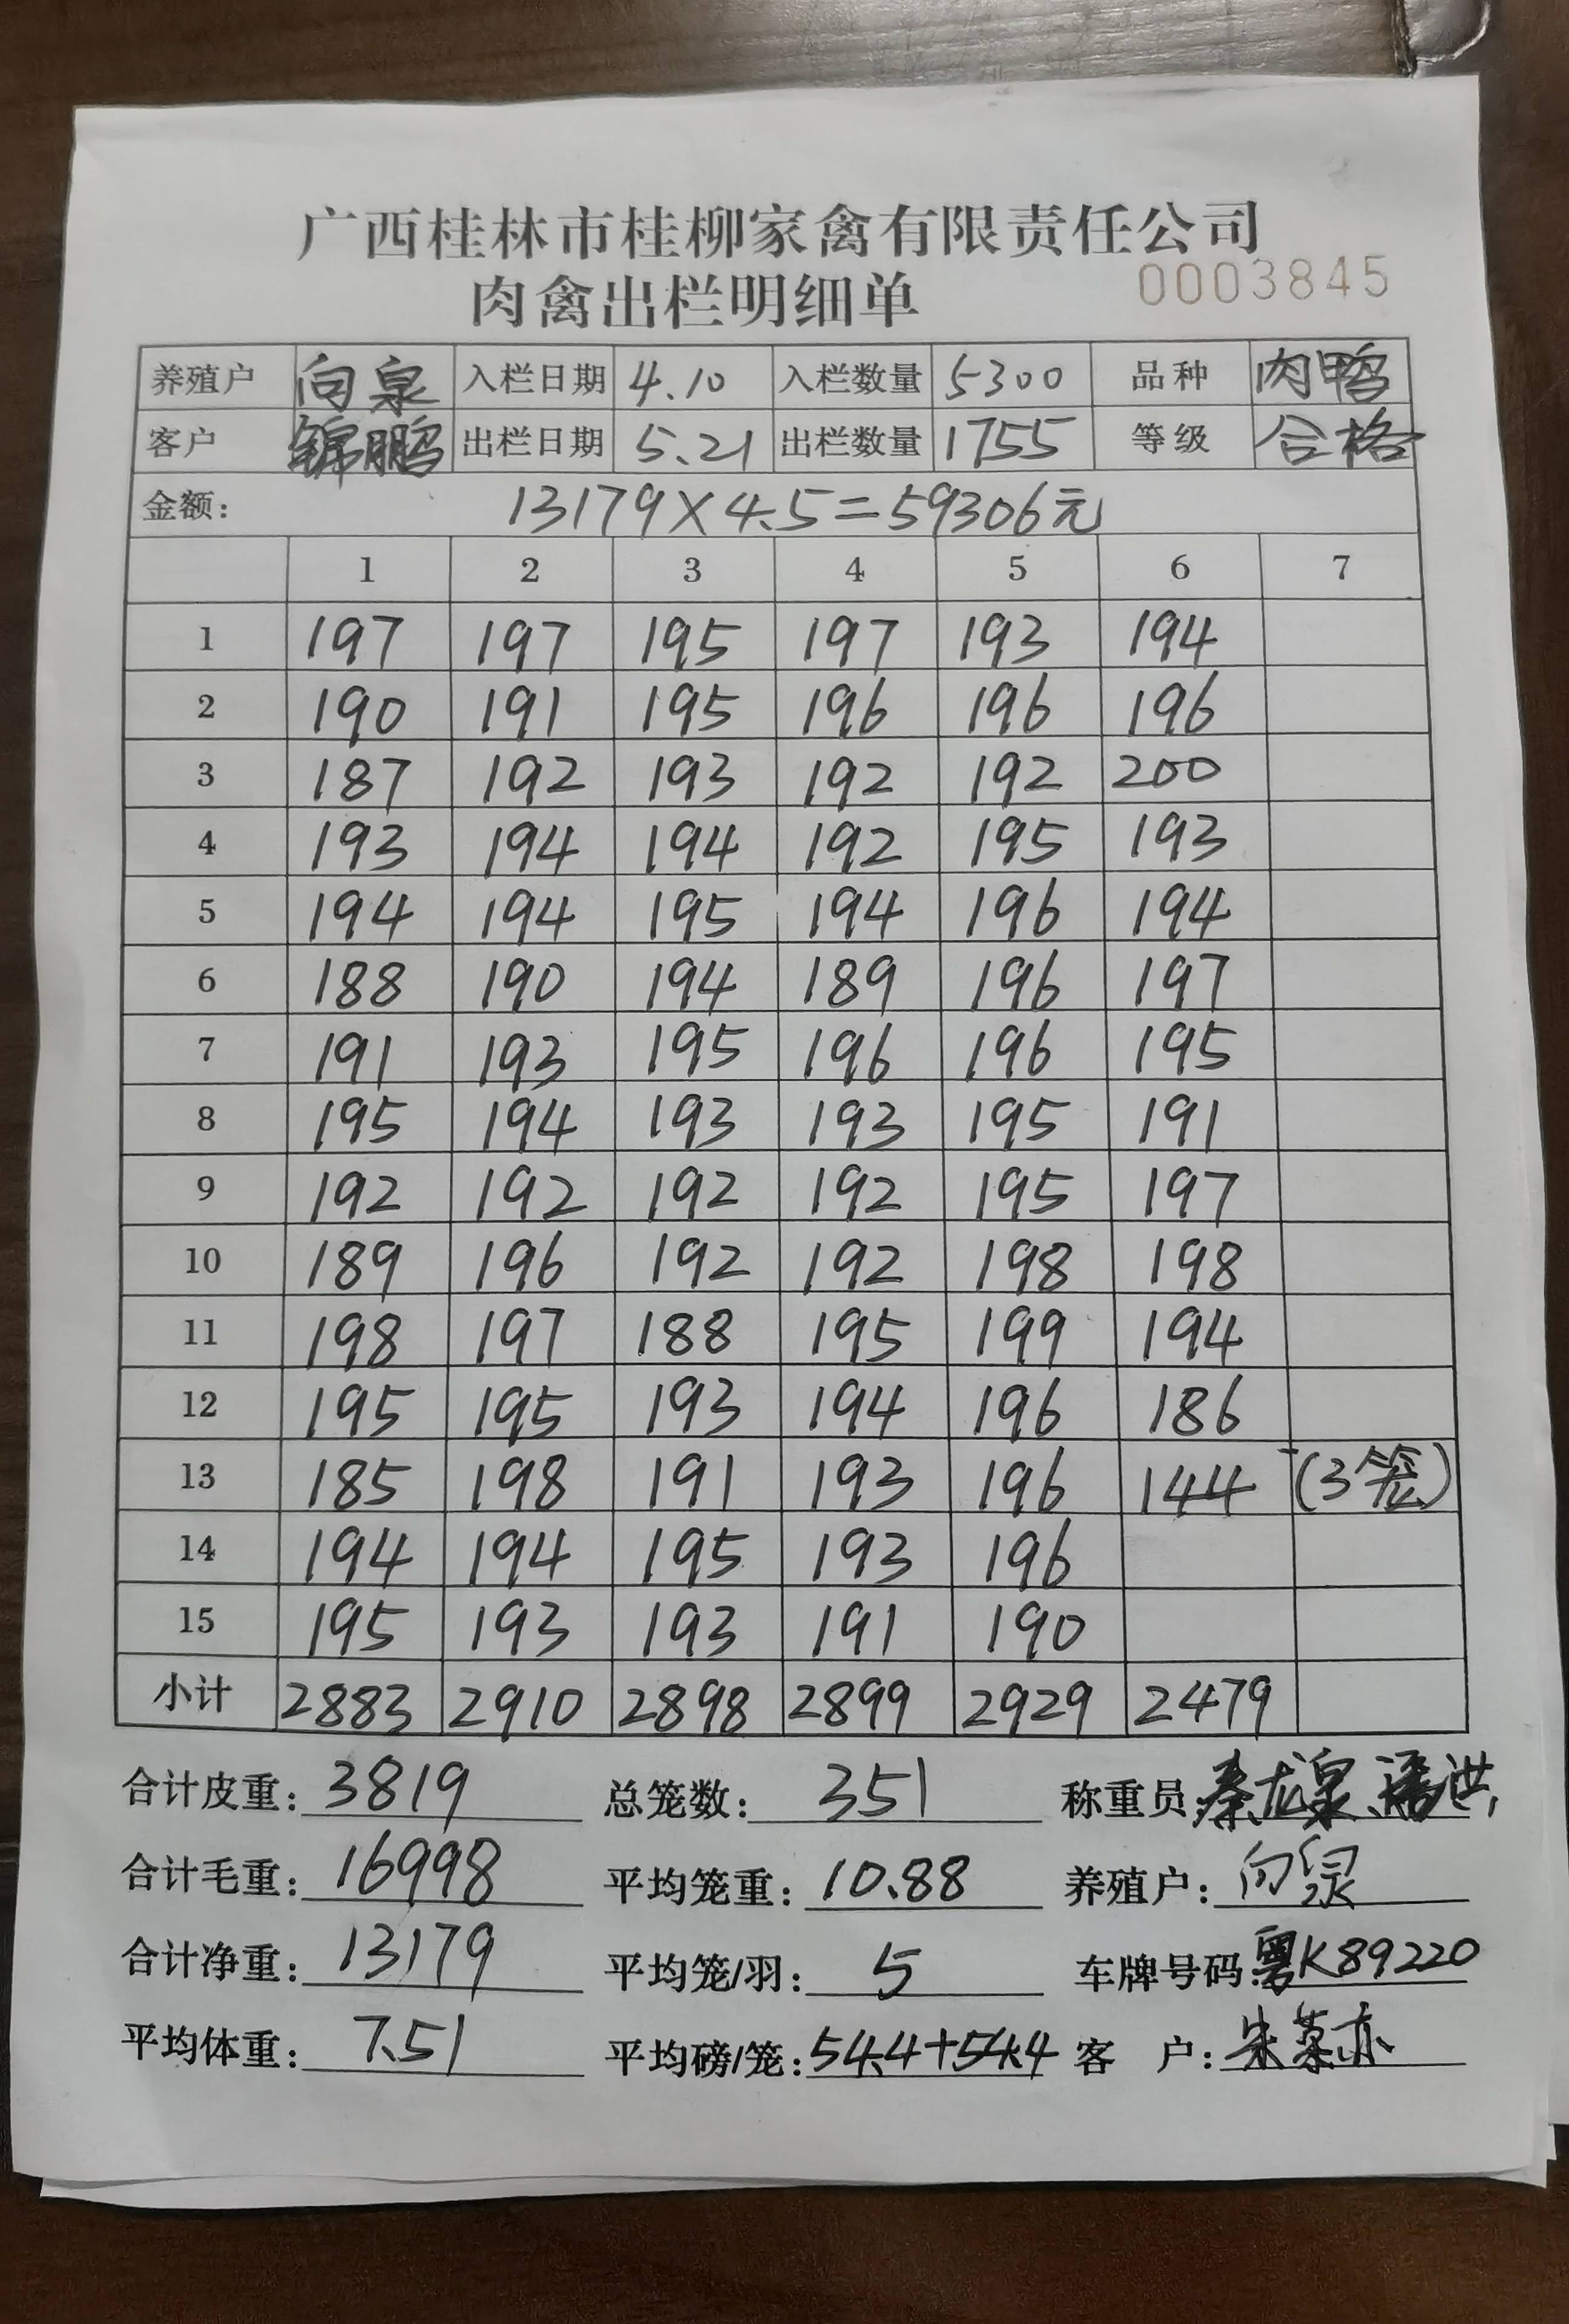 广西桂林市桂柳家禽有限责任公司
肉禽出栏明细单 0003845
养殖户 向泉 入栏日期 4.10 入栏数量 5300 品种 肉鸭
客户 锦鹏 出栏日期 5.21 出栏数量 1755 等级 合格
金额: 13179×4.5=59306元
1 2 3 4 5 6 7
1 197 197 195 197 193 194
2 190 191 195 196 196 196
3 187 192 193 192 192 200
4 193 194 194 192 195 193
5 194 194 195 194 196 194
6 188 190 194 189 196 197
7 191 193 195 196 196 195
8 195 194 193 193 195 191
9 192 192 192 192 195 197
10 189 196 192 192 198 198
11 198 197 188 195 199 194
12 195 195 193 194 196 186
13 185 198 191 193 196 144 (3笼)
14 194 194 195 193 196
15 195 193 193 191 190
小计 2883 2910 2898 2899 2929 2479
合计皮重: 3819 总笼数: 351 称重员: 秦龙泉、潘洪
合计毛重: 16998 平均笼重: 10.88 养殖户: 向泉
合计净重: 13179 平均笼/羽: 5 车牌号码: 粤K89220
平均体重: 7.51 平均磅/笼: 54.4+54.4 客户: